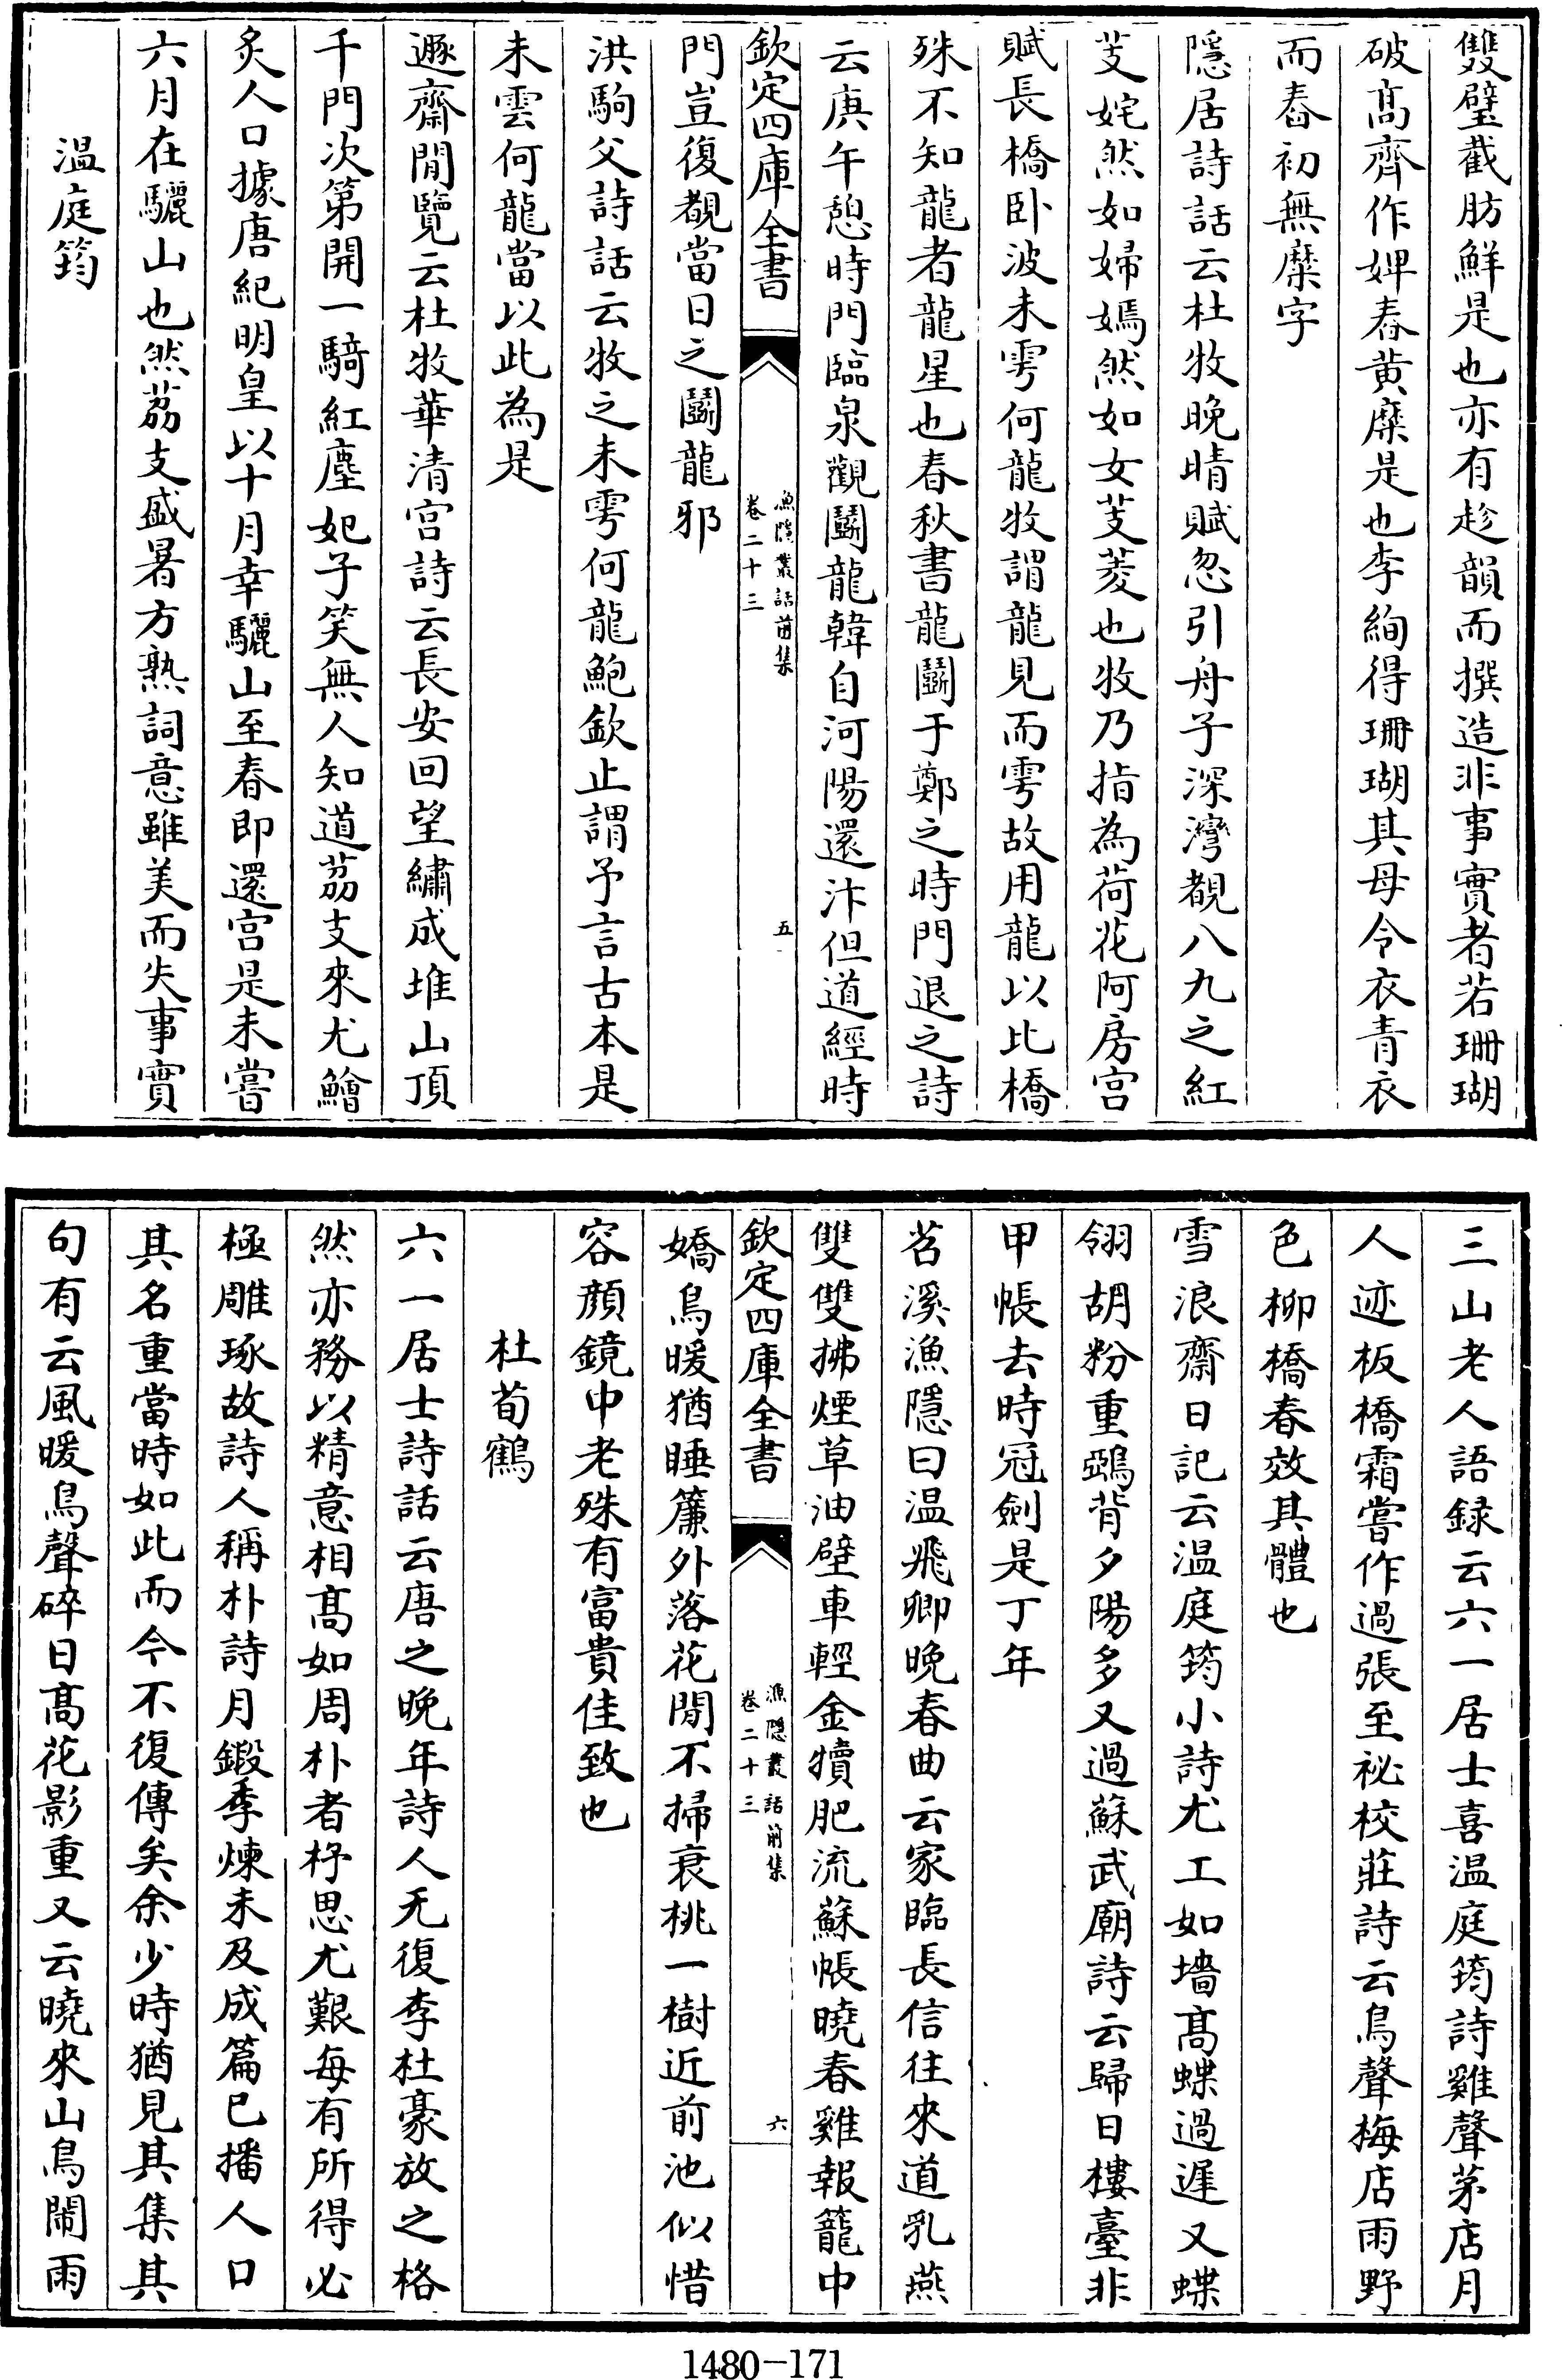 雙璧截肪鮮是也亦有趁韻而撰造非事實者若珊瑚
破髙齊作婢舂黄糜是也李絢得珊瑚其母令衣青衣
而舂初無糜字
隱居詩話云杜牧晚晴賦忽引舟子深灣覩八九之紅
芰姹然如婦嫣然如女芰菱也牧乃指為荷花阿房宫
賦長橋卧波未雩何龍牧謂龍見而雩故用龍以比橋
殊不知龍者龍星也春秋書龍鬭于鄭之時門退之詩
云庚午憩時門臨泉觀鬭龍韓自河陽還汴但道經時
欽定四庫全書
漁隱叢話前集
卷二十三
五
門豈復覩當日之鬭龍邪
洪駒父詩話云牧之未雩何龍鮑欽止謂予言古本是
未雲何龍當以此為是
遯齋閒覽云杜牧華清宫詩云長安回望繡成堆山頂
千門次第開一騎紅塵妃子笑無人知道荔支來尤鱠
炙人口據唐紀明皇以十月幸驪山至春即還宫是未嘗
六月在驪山也然荔支盛暑方熟詞意雖美而失事實
温庭筠
三山老人語録云六一居士喜温庭筠詩雞聲茅店月
人迹板橋霜嘗作過張至祕校莊詩云鳥聲梅店雨野
色柳橋春效其體也
雪浪齋日記云温庭筠小詩尤工如墻髙蝶過遲又蝶
翎胡粉重鵶背夕陽多又過蘇武廟詩云歸日樓臺非
甲帳去時冠劍是丁年
苕溪漁隱曰温飛卿晚春曲云家臨長信往來道乳燕
雙雙拂煙草油壁車輕金犢肥流蘇帳曉春雞報籠中
欽定四庫全書
漁隱叢話前集
卷二十三
六
嬌鳥暖猶睡簾外落花閒不掃衰桃一樹近前池似惜
容顔鏡中老殊有富貴佳致也
杜荀鶴
六一居士詩話云唐之晚年詩人无復李杜豪放之格
然亦務以精意相髙如周朴者杼思尤艱每有所得必
極雕琢故詩人稱朴詩月鍛季煉未及成篇已播人口
其名重當時如此而今不復傳矣余少時猶見其集其
句有云風暖鳥聲碎日髙花影重又云曉來山鳥閙雨
1480—171